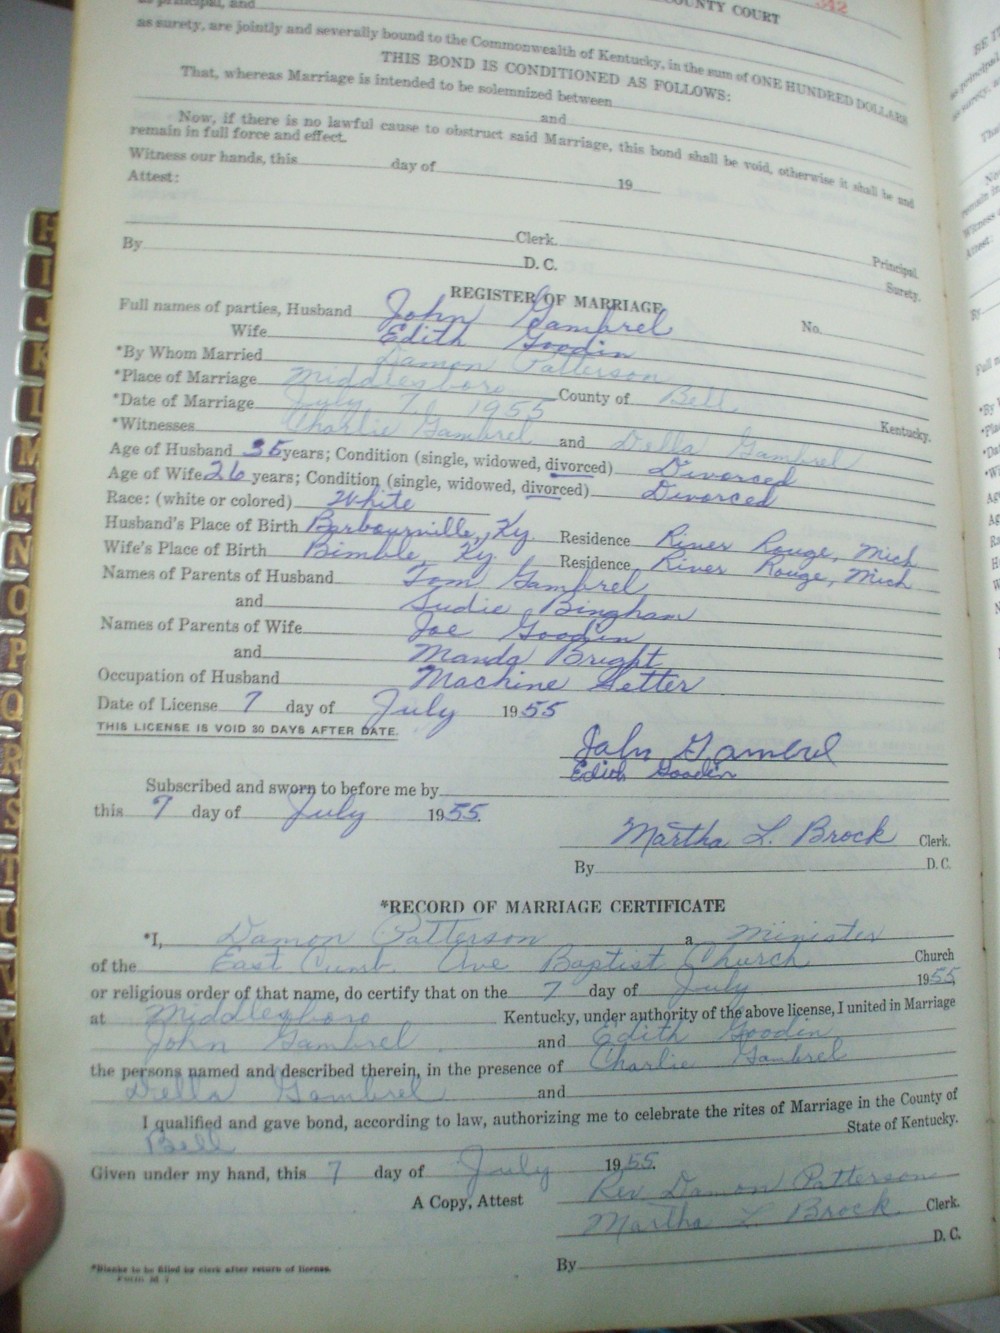 as principal, and
COUNTY COURT
as surety, are jointly and severally bound to the Commonwealth of Kentucky, in the sum of ONE HUNDRED DOLLARS
THIS BOND IS CONDITIONED AS FOLLOWS:
That, whereas Marriage is intended to be solemnized between
and
Now, if there is no lawful cause to obstruct said Marriage, this bond shall be void, otherwise it shall be and
remain in full force and effect.
Witness our hands, this day of 19
Attest:
Clerk. Principal.
By D. C. Surety.
REGISTER OF MARRIAGE
Full names of parties, Husband John Gambrel No.
Wife Edith Goodin
*By Whom Married Damon Patterson
*Place of Marriage Middlesboro County of Bell Kentucky.
*Date of Marriage July 7, 1955
*Witnesses Charlie Gambrel and Della Gambrel
Age of Husband 35 years; Condition (single, widowed, divorced) Divorced
Age of Wife 26 years; Condition (single, widowed, divorced) Divorced
Race: (white or colored) White
Husband's Place of Birth Barbourville, Ky. Residence River Rouge, Mich
Wife's Place of Birth Bimble, Ky. Residence River Rouge, Mich
Names of Parents of Husband Tom Gambrel
and Sudie Bingham
Names of Parents of Wife Joe Goodin
and Manda Bright
Occupation of Husband Machine Setter
Date of License 7 day of July 1955
THIS LICENSE IS VOID 30 DAYS AFTER DATE.
John Gambrel
Edith Goodin
Subscribed and sworn to before me by
this 7 day of July 1955.
Martha L. Brock Clerk.
By D. C.
*RECORD OF MARRIAGE CERTIFICATE
*I, Damon Patterson a minister
of the East Cumb. Ave Baptist Church Church
or religious order of that name, do certify that on the 7 day of July 1955
at Middlesboro Kentucky, under authority of the above license, I united in Marriage
John Gambrel and Edith Goodin
the persons named and described therein, in the presence of Charlie Gambrel
Della Gambrel and
I qualified and gave bond, according to law, authorizing me to celebrate the rites of Marriage in the County of
Bell State of Kentucky.
Given under my hand, this 7 day of July 1955.
Rev Damon Patterson
A Copy, Attest Martha L Brock Clerk.
By D. C.
*Blanks to be filled by clerk after return of license.
H
I
J
K
L
M
M
N
O
P
Q
R
S
T
U
V
W